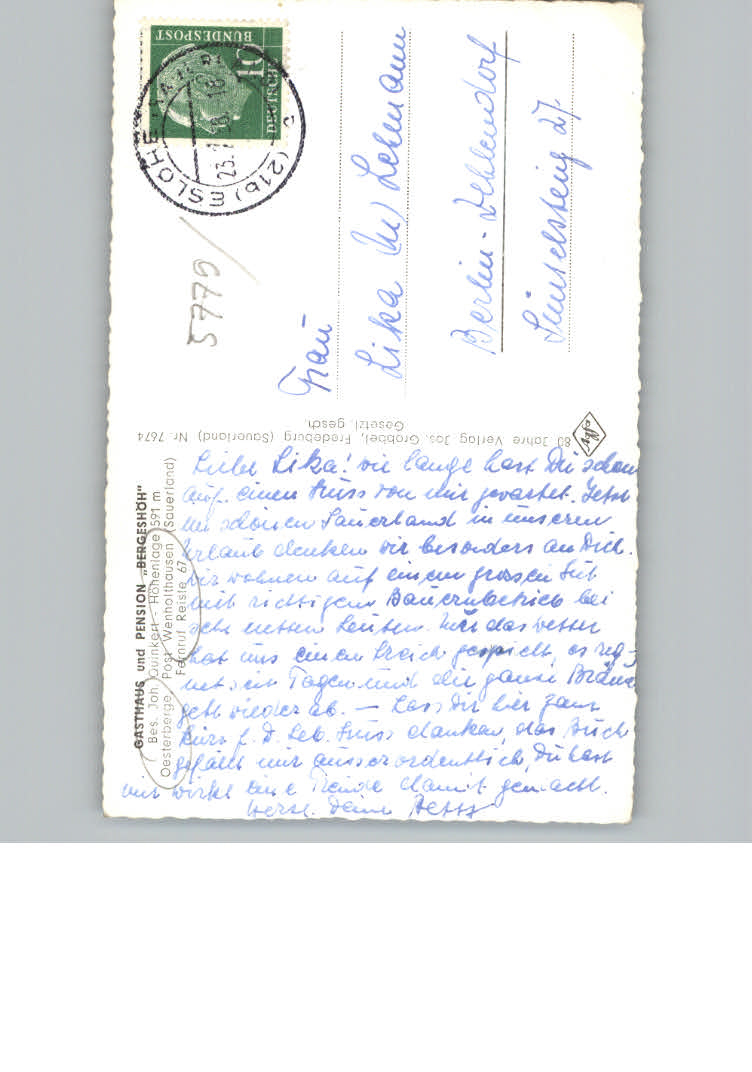 GASTHAUS und PENSION „BERGESHÖH"
Bes. Joh. Quinkert - Höhenlage 591 m
Oesterberge, Post Wenholthausen (Sauerland)
Fernruf Reiste 67
Liebe Lika! wie lange hast Du schon
auf einen Gruss von mir gewartet. Jetzt
im schönen Sauerland in unserem
Urlaub denken wir besonders an Dich.
Wir wohnen auf einem grossen Gut
mit richtigem Bauernbetrieb bei
sehr netten Leuten. Nur das Wetter
hat uns einen Streich gespielt, es reg-
net seit Tagen und die ganze Bräune
geht wieder ab. — Lass Dir hier ganz
kurz f. D. Geb. Gruss danken, das Buch
gefällt mir ausserordentlich, Du hast
mir wirkl eine Freude damit gemacht.
Herzl. Deine
80 Jahre Verlag Jos. Grobbel, Fredeburg (Sauerland) Nr. 7674
Gesetzl. gesch.
Frau
Lika Lehmann
Berlin-Zehlendorf
27
5779/
DEUTSCHE
BUNDESPOST
10
(21b) ESLOHE
23.7.58
a